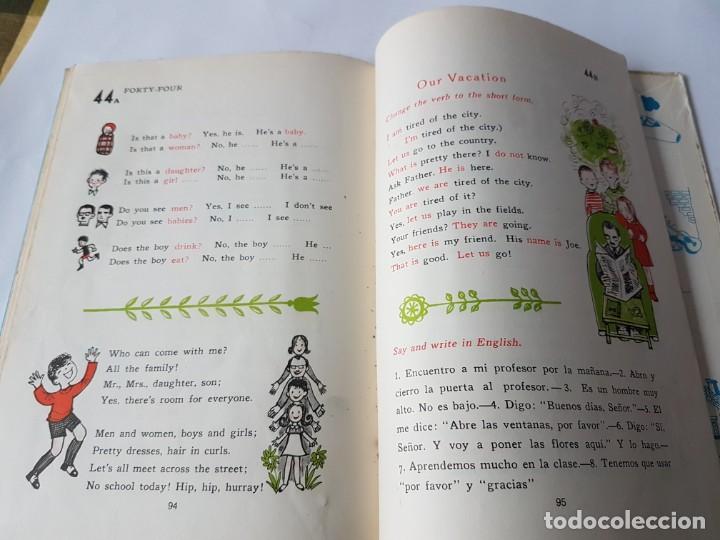 44A FORTY-FOUR
Is that a baby? Yes, he is. He's a baby.
Is that a woman? No, he ...... He's a ......
Is this a daughter? No, he ...... He's a ......
Is this a girl? No, he ...... He's a ......
Do you see men? Yes, I see ...... I don't see
Do you see babies? No, I ...... I see ......
Does the boy drink? No, the boy ...... He ......
Does the boy eat? No, the boy ...... He ......
Who can come with me?
All the family!
Mr., Mrs., daughter, son;
Yes, there's room for everyone.
Men and women, boys and girls;
Pretty dresses, hair in curls.
Let's all meet across the street;
No school today! Hip, hip, hurray!
94
Our Vacation 44B
Change the verb to the short form.
I am tired of the city.
I'm tired of the city.)
Let us go to the country.
What is pretty there? I do not know.
Ask Father. He is here.
Father, we are tired of the city.
You are tired of it?
Yes, let us play in the fields.
Your friends? They are going.
Yes, here is my friend. His name is Joe.
That is good. Let us go!
Say and write in English.
1. Encuentro a mi profesor por la mañana.—2. Abro y
cierro la puerta al profesor.—3. Es un hombre muy
alto. No es bajo.—4. Digo: "Buenos días, Señor."—5. El
me dice: "Abre las ventanas, por favor".—6. Digo: "Sí,
Señor. Y voy a poner las flores aquí." Y lo hago.—
7. Aprendemos mucho en la clase.—8. Tenemos que usar
"por favor" y "gracias"
95
todocoleccion
todocoleccion.net